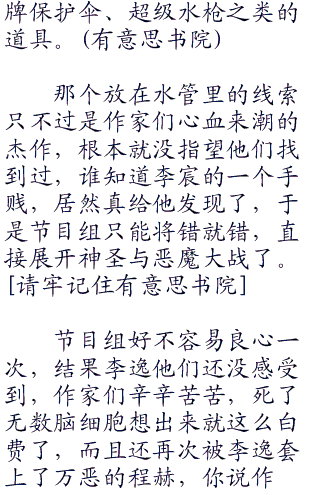 牌保护伞、超级水枪之类的
道具。(有意思书院)
那个放在水管里的线索
只不过是作家们心血来潮的
杰作，根本就没指望他们找
到过，谁知道李宸的一个手
贱，居然真给他发现了，于
是节目组只能将错就错，直
接展开神圣与恶魔大战了。
[请牢记住有意思书院]
节目组好不容易良心一
次，结果李逸他们还没感受
到，作家们辛辛苦苦，死了
无数脑细胞想出来就这么白
费了，而且还再次被李逸套
上了万恶的程赫，你说作